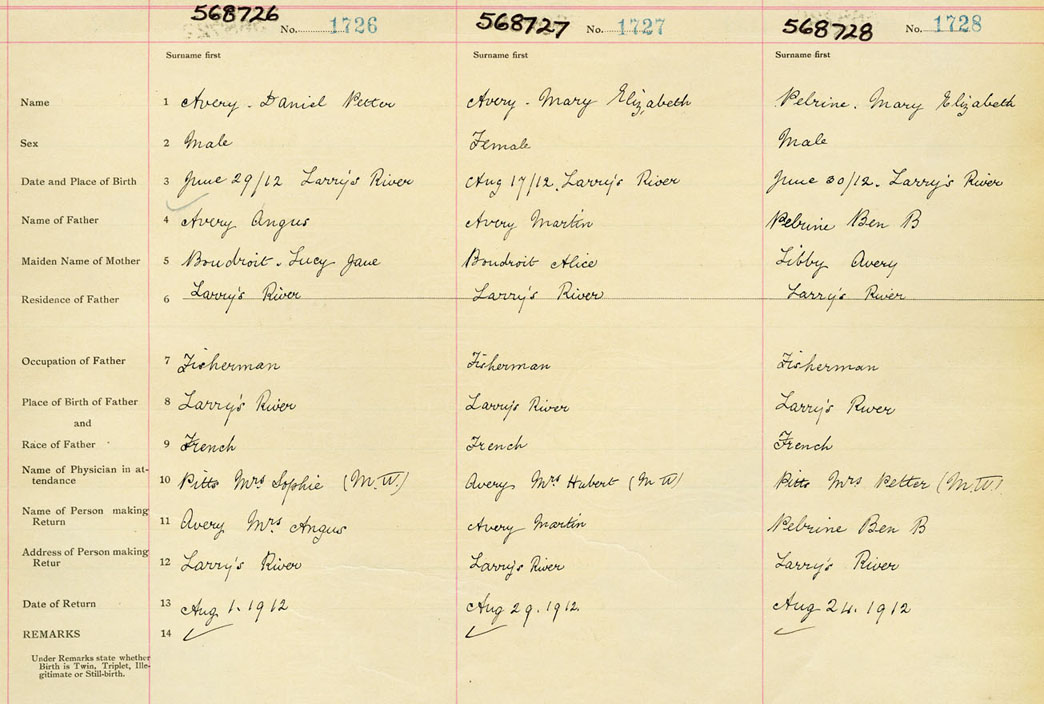 568726 568727 568728
No. 1726 No. 1727 No. 1728
Surname first Surname first Surname first
Name 1 Avery. Daniel Petter Avery. Mary Elizabeth Pelrine. Mary Elizabeth
Sex 2 Male Female Male
Date and Place of Birth 3 June 29/12 Larry's River Aug 17/12. Larry's River June 30/12. Larry's River
Name of Father 4 Avery Angus Avery Martin Pelrine Ben B
Maiden Name of Mother 5 Boudroit. Lucy Jane Boudroit Alice Libby Avery
Residence of Father 6 Larry's River Larry's River Larry's River
Occupation of Father 7 Fisherman Fisherman Fisherman
Place of Birth of Father 8 Larry's River Larry's River Larry's River
and
Race of Father 9 French French French
Name of Physician in at-
tendance 10 Pitts Mrs Sophie (M.W.) Avery Mrs Hubert (M W) Pitts Mrs Petter (M.W.)
Name of Person making
Return 11 Avery Mrs Angus Avery Martin Pelrine Ben B
Address of Person making
Retur 12 Larry's River Larry's River Larry's River
Date of Return 13 Aug 1. 1912 Aug 29. 1912 Aug 24. 1912
REMARKS 14
Under Remarks state whether
Birth is Twin, Triplet, Ille-
gitimate or Still-birth.